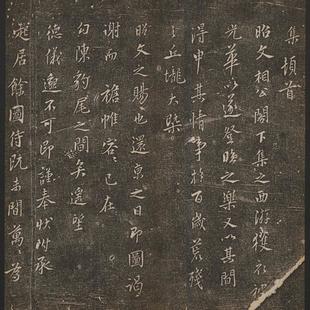 集頓首
昭文相公閣下集之西游獲
光華以遂登臨之樂又以其間
得申其情事於百歲荒殘
之丘壠大槩
昭文之賜也還京之日即圖謁
謝而襜帷容容已在
勾陳豹尾之間矣遙望
德儀邈不可即謹奉狀附承
起居餘國侍阮 間萬萬 尊